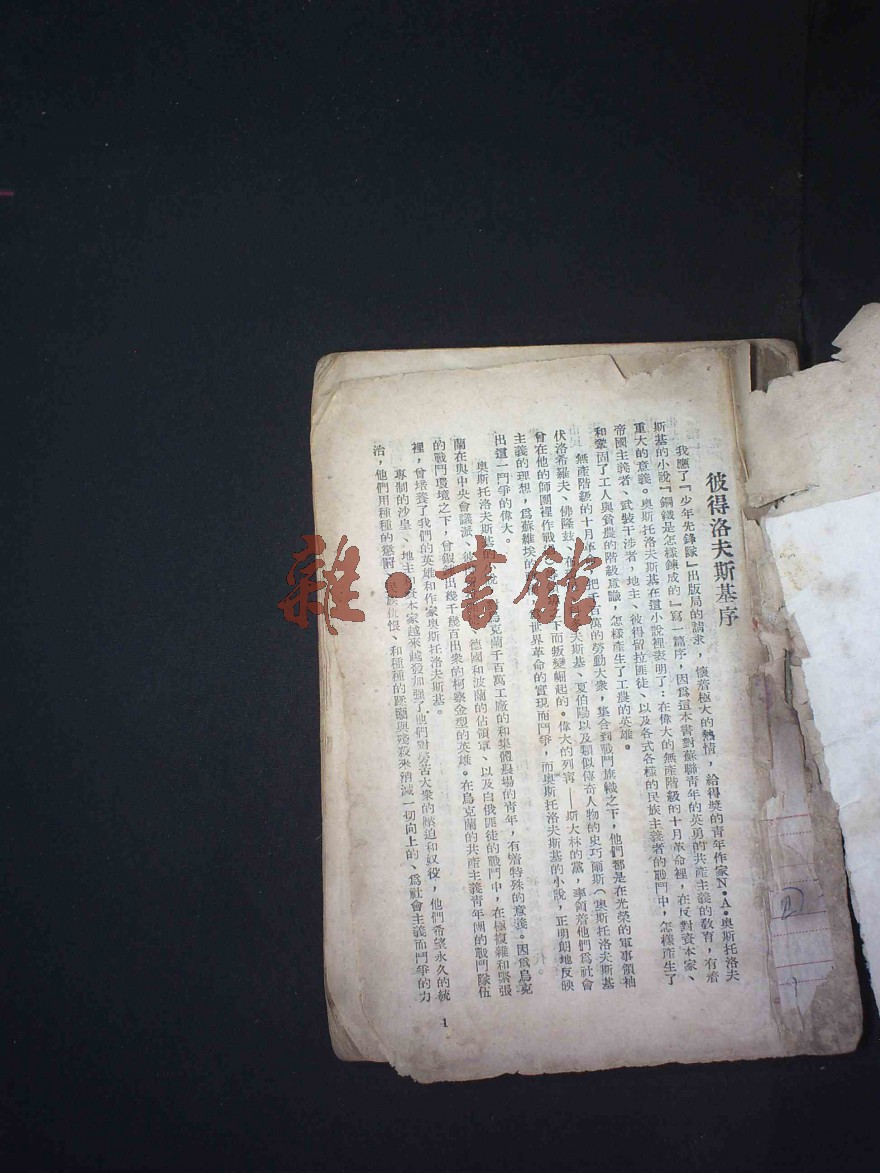 彼得洛夫斯基序
我應了『少年先鋒隊』出版局的請求，懷著極大的熱情，給得獎的青年作家N·A·奧斯托洛夫
斯基的小說『鋼鐵是怎樣鍊成的』寫一篇序，因爲這本書對蘇聯青年的英勇的共產主義的教育，有着
重大的意義。奧斯托洛夫斯基在這小說裡表明了：在偉大的無產階級的十月革命裡，在反對資本家、
帝國主義者、武裝干涉者，地主、彼得留拉匪徒、以及各式各種的民族主義者的戰鬥中，怎樣產生了
和鞏固了工人與貧農的階級意識，怎樣產生了工農的英雄。
無產階級的十月革 把千 萬的勞動大衆，集合到戰鬥旗幟之下，他們都是在光榮的軍事領袖
伏洛希羅夫、佛隆茲、 夫斯基、夏伯陽以及類似傳奇人物的史巧爾斯（奧斯托洛夫斯基
曾在他的師團裡作戰 下而叛變崛起的。偉大的列寧——斯大林的黨，率領着他們爲社會
主義的理想，爲蘇維埃的 世界革命的實現而鬥爭，而奧斯托洛夫斯基的小說，正明朗地反映
出這一鬥爭的偉大。
奧斯托洛夫斯基的小說， 烏克蘭千百萬工廠的和集體農場的青年，有着特殊的意義。因爲烏克
蘭在與中央會議派、彼得 德國和波蘭的佔領軍、以及白俄匪徒的戰鬥中，在極複雜和緊張
的戰鬥環境之下，曾鍛鍊出幾千幾百出衆的柯察金型的英雄。在烏克蘭的共產主義青年團的戰鬥隊伍
裡，曾培養了我們的英雄和作家奧斯托洛夫斯基。
專制的沙皇、地主、資本家越來越發加強了他們對勞苦大衆的壓迫和奴役，他們希望永久的統
治，他們用種種的懲罰、民族仇恨、和種種的蹂躪與殘殺來消滅一切向上的、爲社會主義而鬥爭的力
1
雜·書館